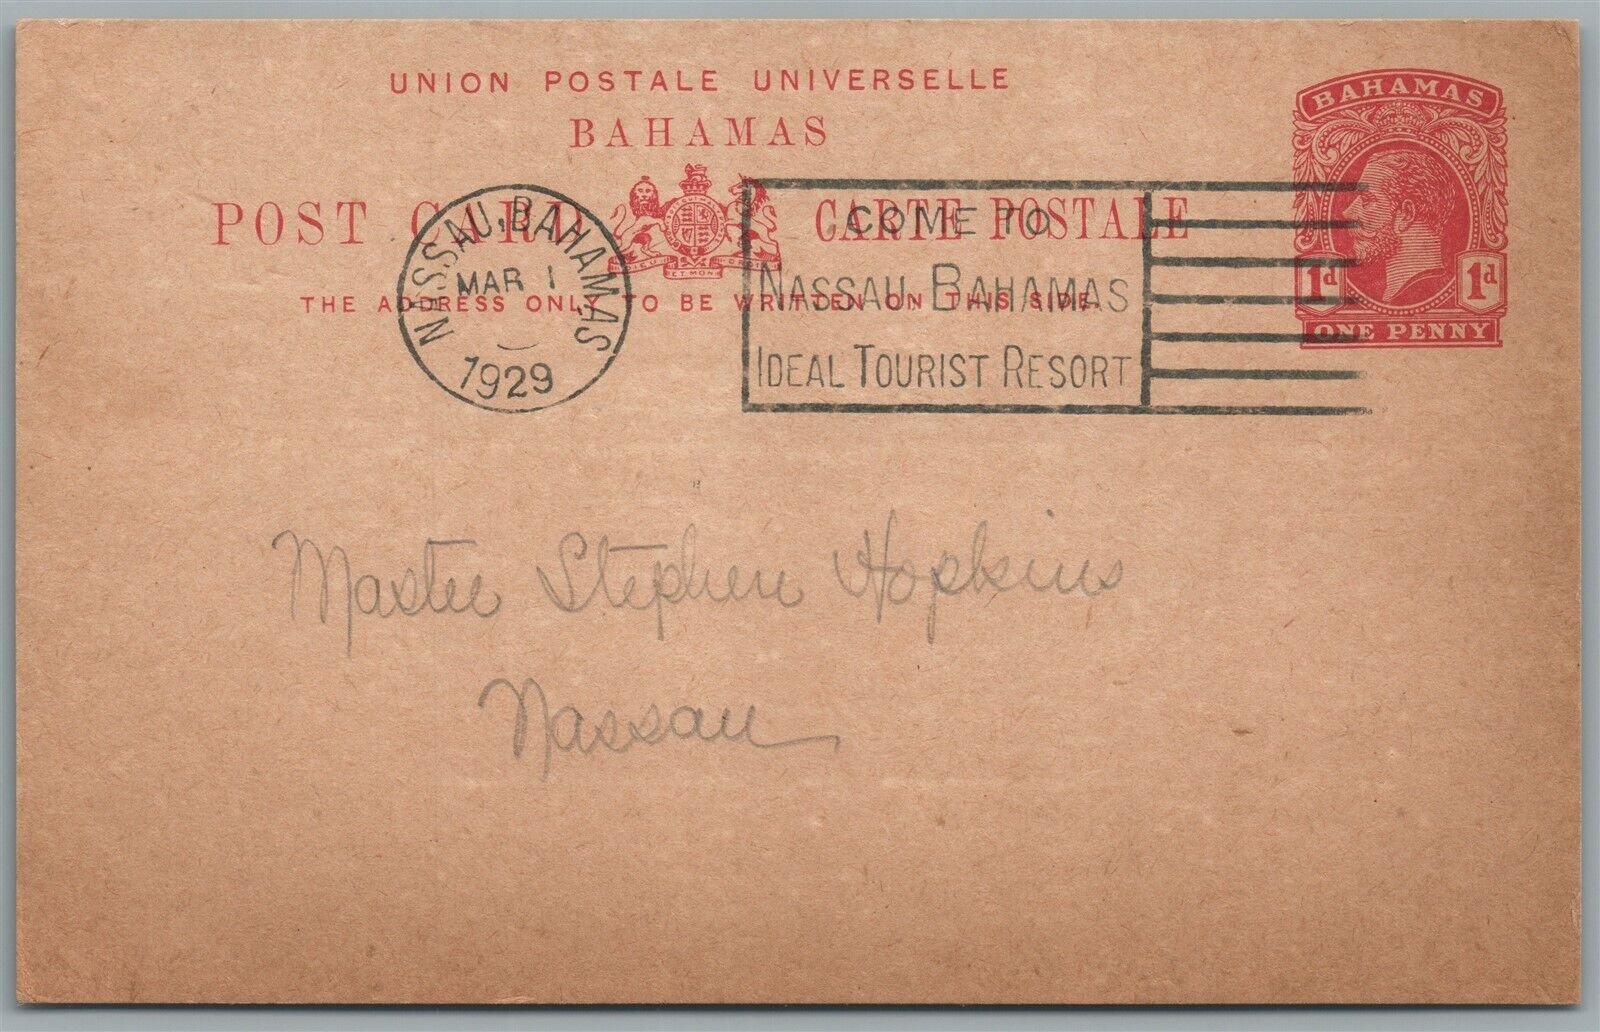 UNION POSTALE UNIVERSELLE
BAHAMAS
POST CARD CARTE POSTALE
THE ADDRESS ONLY TO BE WRITTEN ON THIS SIDE.
BAHAMAS
1d 1d
ONE PENNY
NASSAU, BAHAMAS
MAR 1
1929
COME TO
NASSAU BAHAMAS
IDEAL TOURIST RESORT
Master Stephen Hopkins
Nassau